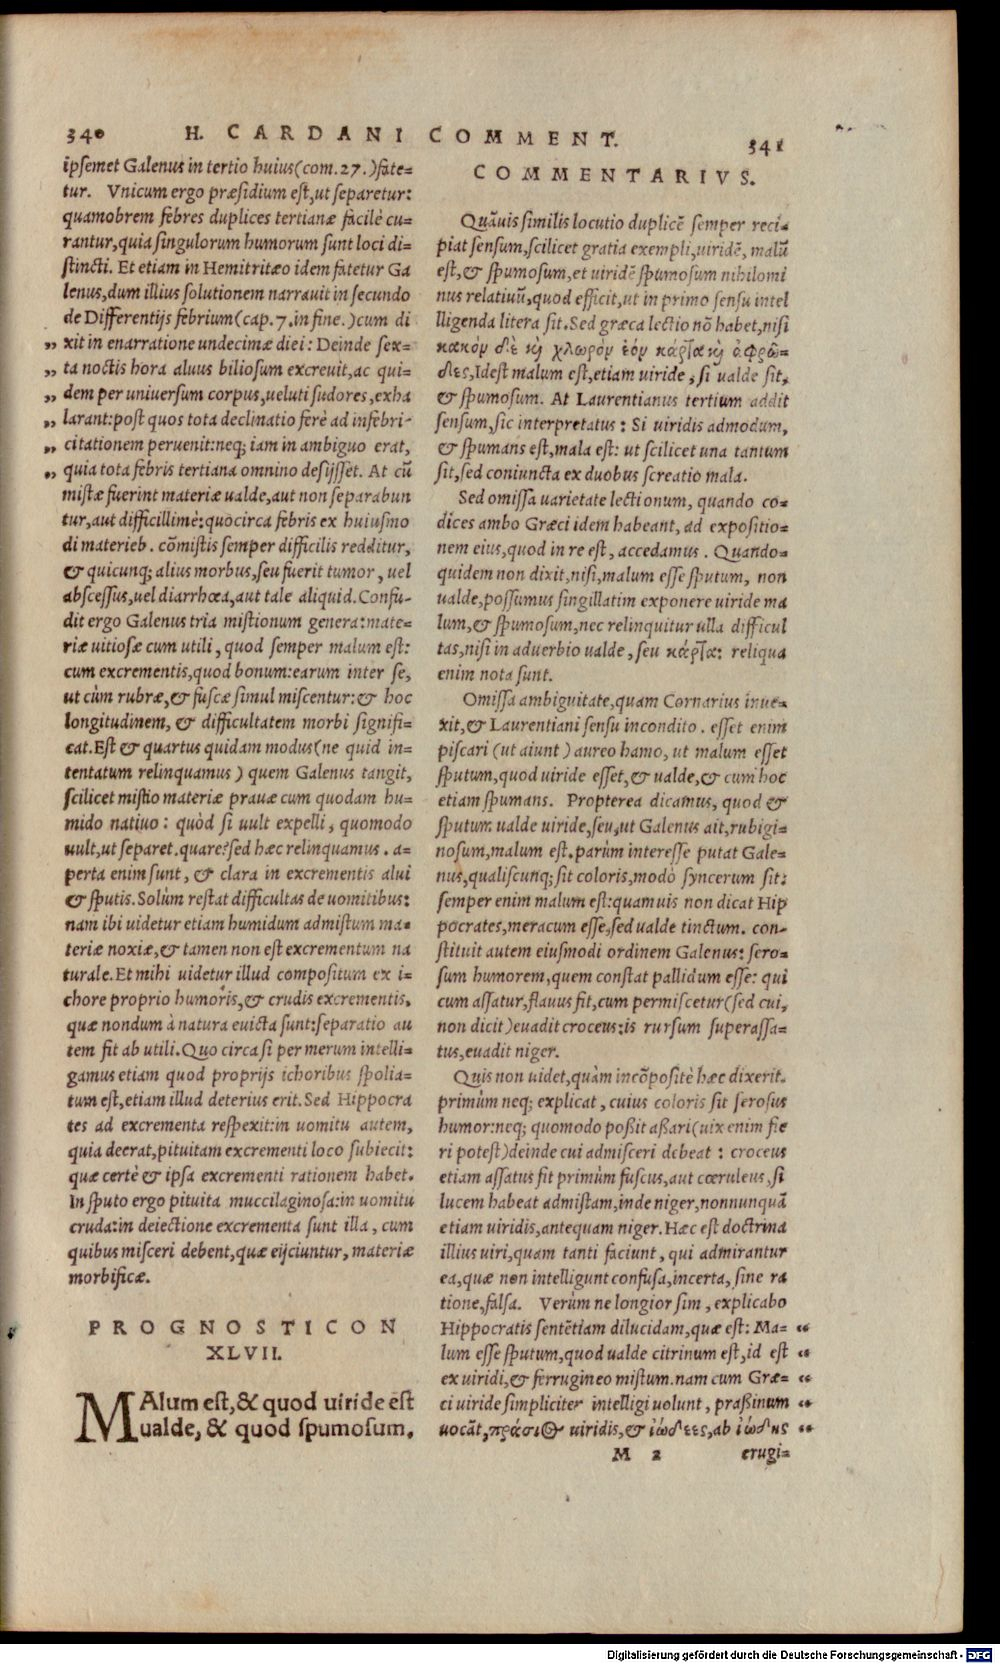 340 H. CARDANI COMMENT. 341
ipsemet Galenus in tertio huius(com. 27.)fate=
tur. Vnicum ergo præsidium est,ut separetur:
quamobrem febres duplices tertianæ facilè cu=
rantur,quia singulorum humorum sunt loci di=
stincti. Et etiam in Hemitritæo idem fatetur Ga
lenus,dum illius solutionem narrauit in secundo
de Differentijs febrium(cap. 7. in fine.)cum di
„ xit in enarratione undecimæ diei: Deinde sex=
„ ta noctis hora aluus biliosum excreuit,ac qui=
„ dem per uniuersum corpus,ueluti sudores,exha
„ larant:post quos tota declinatio ferè ad infebri-
„ citationem peruenit:neq; iam in ambiguo erat,
„ quia tota febris tertiana omnino desijsset. At cū
mistæ fuerint materiæ ualde,aut non separabun
tur,aut difficillimè:quocirca febris ex huiusmo
di materieb. cōmistis semper difficilis redditur,
& quicunq; alius morbus,seu fuerit tumor, uel
abscessus,uel diarrhœa,aut tale aliquid. Confu-
dit ergo Galenus tria mistionum genera:mate=
riæ uitiosæ cum utili, quod semper malum est:
cum excrementis,quod bonum:earum inter se,
ut cùm rubræ,& fuscæ simul miscentur:& hoc
longitudinem, & difficultatem morbi signifi=
cat. Est & quartus quidam modus(ne quid in=
tentatum relinquamus) quem Galenus tangit,
scilicet mistio materiæ prauæ cum quodam hu=
mido natiuo: quòd si uult expelli, quomodo
uult,ut separet. quare?sed hæc relinquamus. a=
perta enim sunt, & clara in excrementis alui
& sputis. Solùm restat difficultas de uomitibus:
nam ibi uidetur etiam humidum admistum ma=
teriæ noxiæ,& tamen non est excrementum na
turale. Et mihi uidetur illud compositum ex i=
chore proprio humoris,& crudis excrementis,
quæ nondum à natura euicta sunt:separatio au
tem fit ab utili. Quo circa si per merum intelli=
gamus etiam quod proprijs ichoribus spolia=
tum est,etiam illud deterius erit. Sed Hippocra
tes ad excrementa respexit:in uomitu autem,
quia deerat,pituitam excrementi loco subiecit:
quæ certè & ipsa excrementi rationem habet.
In sputo ergo pituita muccilaginosa:in uomitu
cruda:in deiectione excrementa sunt illa, cum
quibus misceri debent,quæ eijciuntur, materiæ
morbificæ.
PROGNOSTICON
XLVII.
MAlum est,& quod uiride est
ualde, & quod spumosum.
COMMENTARIVS.
Quāuis similis locutio duplicē semper reci=
piat sensum,scilicet gratia exempli,uiridē, malū
est,& spumosum,et uiridē spumosum nihilomi
nus relatiuū,quod efficit,ut in primo sensu intel
lligenda litera sit. Sed græca lectio nō habet,nisi
κακόν δὲ κỳ χλωρόν ἐόν κάρτα κỳ ἀφρῶ=
δες,Idest malum est,etiam uiride, si ualde sit,
& spumosum. At Laurentianus tertium addit
sensum,sic interpretatus: Si uiridis admodum,
& spumans est,mala est: ut scilicet una tantum
sit,sed coniuncta ex duobus screatio mala.
Sed omissa uarietate lectionum, quando co=
dices ambo Græci idem habeant, ad expositio=
nem eius,quod in re est, accedamus. Quando=
quidem non dixit,nisi,malum esse sputum, non
ualde,possumus singillatim exponere uiride ma
lum,& spumosum,nec relinquitur ulla difficul
tas,nisi in aduerbio ualde, seu κάρτα: reliqua
enim nota sunt.
Omissa ambiguitate,quam Cornarius inue=
xit,& Laurentiani sensu incondito. esset enim
piscari (ut aiunt) aureo hamo, ut malum esset
sputum,quod uiride esset,& ualde,& cum hoc
etiam spumans. Propterea dicamus, quod &
sputum ualde uiride,seu,ut Galenus ait,rubigi=
nosum,malum est. parùm interesse putat Gale=
nus,qualiscunq; sit coloris,modò syncerum sit:
semper enim malum est:quamuis non dicat Hip
pocrates,meracum esse,sed ualde tinctum. con=
stituit autem eiusmodi ordinem Galenus: sero=
sum humorem,quem constat pallidum esse: qui
cum assatur,flauus fit,cum permiscetur(sed cui,
non dicit)euadit croceus:is rursum superassa=
tus,euadit niger.
Quis non uidet,quàm incōpositè hæc dixerit.
primùm neq; explicat, cuius coloris sit serosus
humor:neq; quomodo poßit aßari(uix enim fie
ri potest)deinde cui admisceri debeat: croceus
etiam assatus fit primùm fuscus,aut cœruleus,si
lucem habeat admistam,inde niger,nonnunquā
etiam uiridis,antequam niger. Hæc est doctrina
illius uiri,quam tanti faciunt, qui admirantur
ea,quæ non intelligunt confusa,incerta, sine ra
tione,falsa. Verùm ne longior sim, explicabo
Hippocratis sentētiam dilucidam,quæ est: Ma= “
lum esse sputum,quod ualde citrinum est,id est “
ex uiridi,& ferrugineo mistum. nam cum Græ= “
ci uiride simpliciter intelligi uolunt, praßinum “
uocāt,πράσιος uiridis,& ἰώδεες,ab ἰώδης “
M 2 erugi=
Digitalisierung gefördert durch die Deutsche Forschungsgemeinschaft - DFG